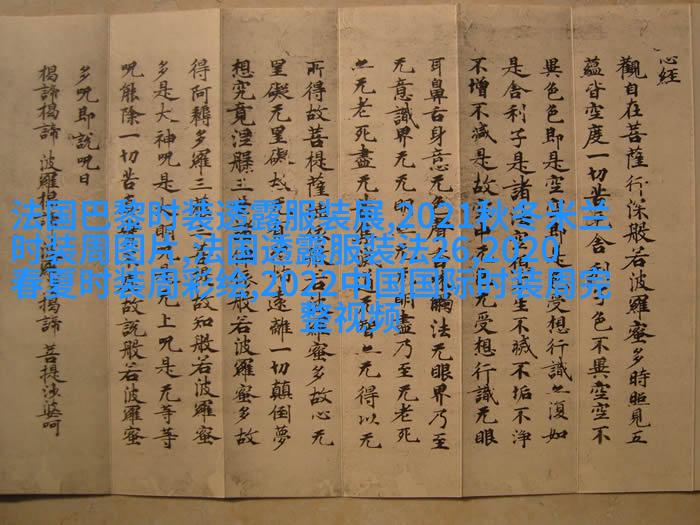 心经
觀自在菩薩行深般若波羅蜜多時照見五
蘊皆空度一切苦舍利色不異空空不
異色色即是空空即受想行識亦復如
是舍利子是諸空相生不滅不垢不淨
不增不減是故中无受想行識无眼
耳鼻舌身意无色聲觸法无眼界乃至
无意識界无无明亦无明盡乃至无老死
亦无老死盡无道无智亦无得以无
所得故菩提薩埵依若波羅蜜多故心无
罣礙无罣礙故遠離一切顛倒夢
想究竟涅槃三依般若波羅蜜多故
得阿耨多羅三藐三菩提故知般若波羅蜜
多是大神呪是大明呪无上呪是无等等
呪能除一切苦故說般若波羅蜜
多呪即說呪曰
揭諦揭諦 波羅揭諦 揭諦 菩提婆呵
法国巴黎时装透露服装展,2021秋冬米兰
时装周图片,法国透露服装法26,2020
春夏时装周彩绘,2022中国国际时装周完
整视频